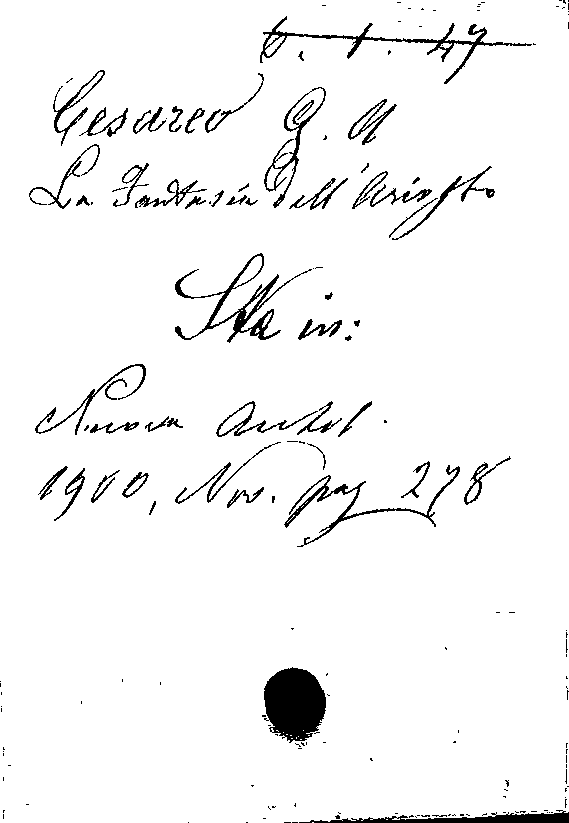 6. 1. 47
Cesareo G. A
La Fantasia dell' Ariosto
Sta in:
Nuova Antol.
1900, Nov. pag 278